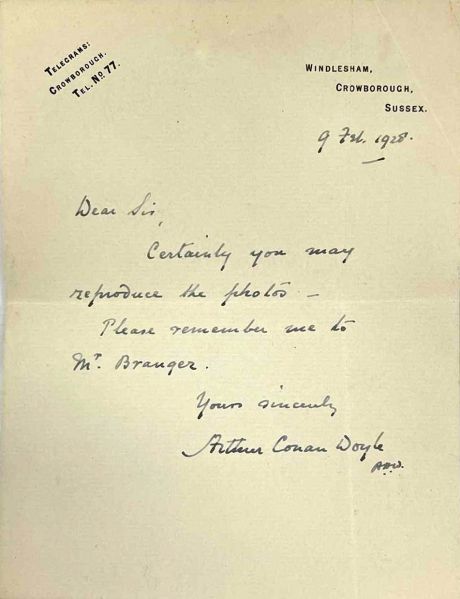 TELEGRAMS:
CROWBOROUGH.
TEL. NO 77.
WINDLESHAM,
CROWBOROUGH,
SUSSEX.
9 Feb. 1928.
Dear Sir,
Certainly you may
reproduce the photos –
Please remember me to
Mr. Branger.
Yours sincerely
Arthur Conan Doyle